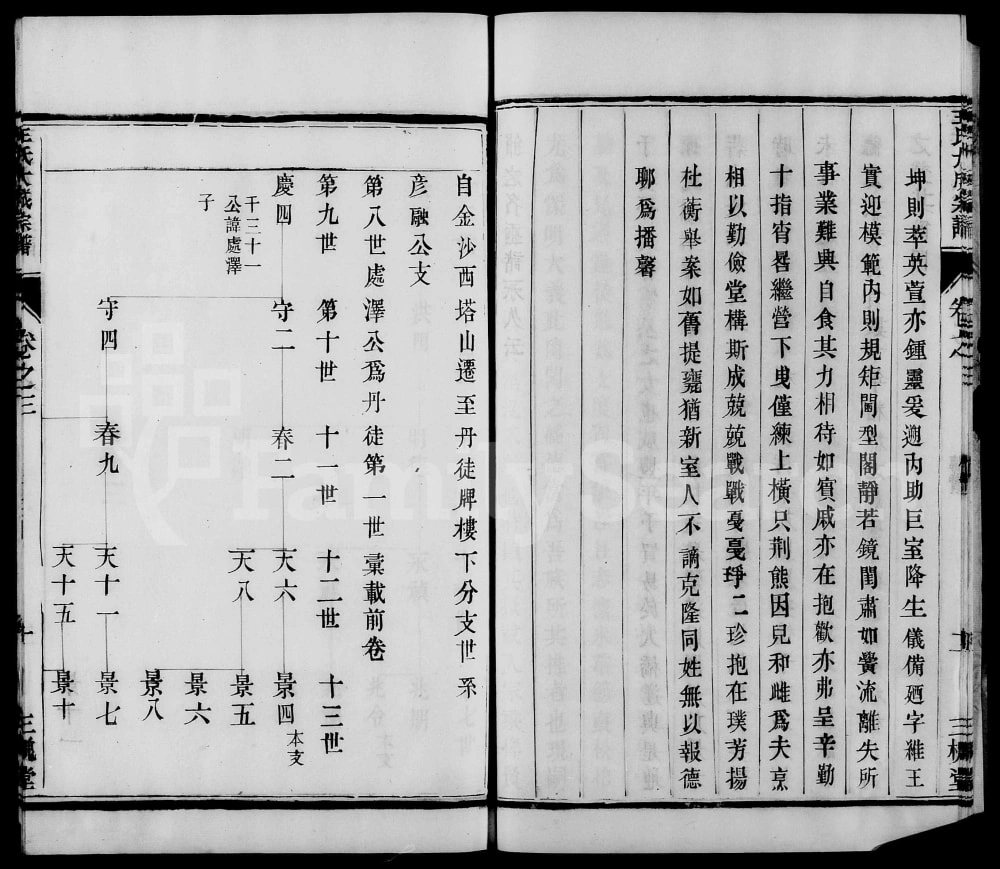 坤則萃英萱亦鍾靈爰迎內助巨室降生儀備廼字維王
實迎模範內則規矩閫型閣靜若鏡閨肅如黌流離失所
事業難興自食其力相待如賓戚亦在抱歡亦弗呈辛勤
十指宵晷繼營下曳僅練上橫只荆熊因兒和雌爲夫烹
相以勤儉堂構斯成兢兢戰戰戛戛琤二珍抱在璞芳揚
杜蘅舉案如舊提甕猶新室人不謫克隆同姓無以報德
聊爲播馨
王氏九修宗譜
卷之三
三槐堂
自金沙西塔山遷至丹徒牌樓下分支世系
彦融公支
第八世處澤公爲丹徒第一世彙載前卷
第九世 第十世 十一世 十二世 十三世
慶四 守二 春二 天六 景四 本支
千三十一公諱處澤子
天八 景五
景六
景八
守四 春九 天十一 景七
天十五 景十
宗譜
卷之三
十
三槐堂
FamilySearch